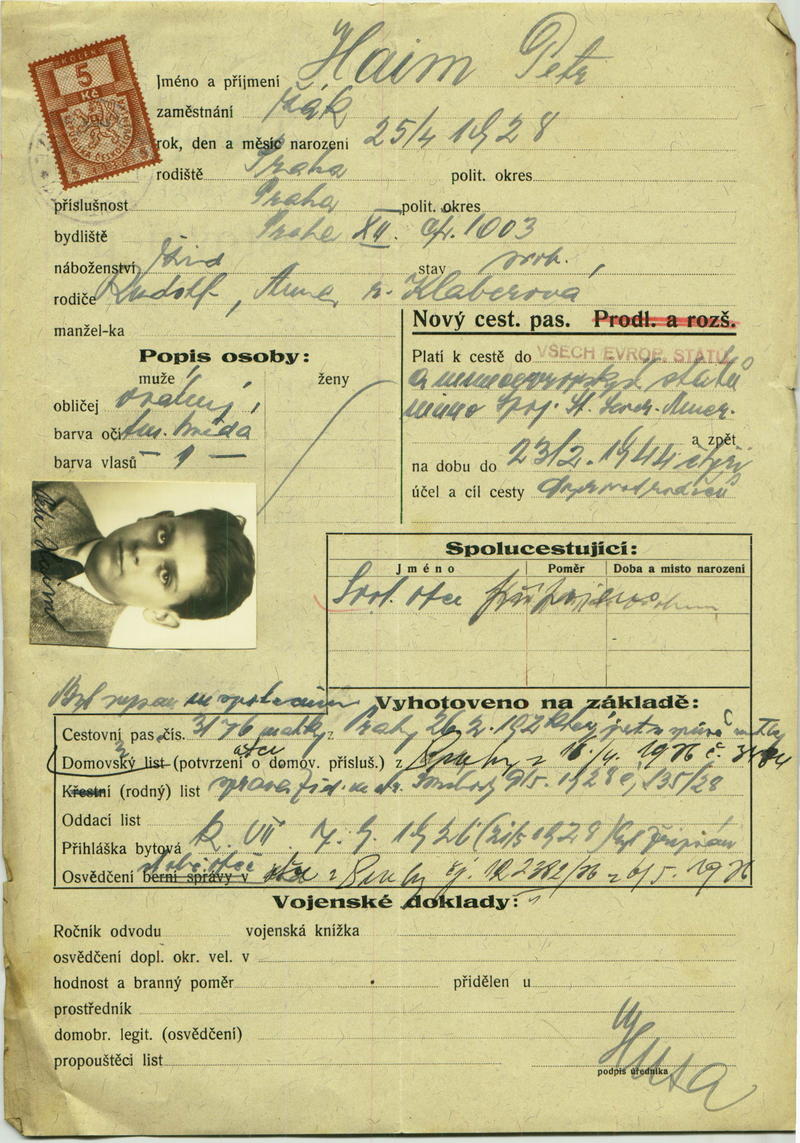 5
Kč
REPUBLIKA ČESKOSLOVENSKÁ
Jméno a příjmení Haim Petr
zaměstnání žák
rok, den a měsíc narození 25/4 1928
rodiště Praha polit. okres
příslušnost Praha polit. okres
bydliště Praha XII. čp. 1003
náboženství žid stav svob.
rodiče Rudolf, Anna r. Klaberová
manžel-ka
Nový cest. pas. Prodl. a rozš.
Platí k cestě do VŠECH EVROP. STÁTŮ
a mimoevropských států
mimo Spoj. St. Sever. Amer.
a zpět
na dobu do 23/2. 1944 čtyři
účel a cíl cesty
Popis osoby:
muže ženy
obličej oválný
barva očí tm. hnědá
barva vlasů — " —
Petr Haim
Spolucestující:
Jméno Poměr Doba a místo narození
Svol. otce
Vyhotoveno na základě:
Cestovní pas čís. 3176 matky z Prahy
Domovský list (potvrzení o domov. přísluš.) z Prahy z 16/4. 1936 č.
Křestní (rodný) list 9/5. 1928 č. 135/28
Oddací list
Přihláška bytová R. VII 7. 9. 1926
Osvědčení berní správy v z Prahy čj.
Vojenské doklady:
Ročník odvodu vojenská knížka
osvědčení dopl. okr. vel. v
hodnost a branný poměr přidělen u
prostředník
domobr. legit. (osvědčení)
propouštěcí list
podpis úředníka